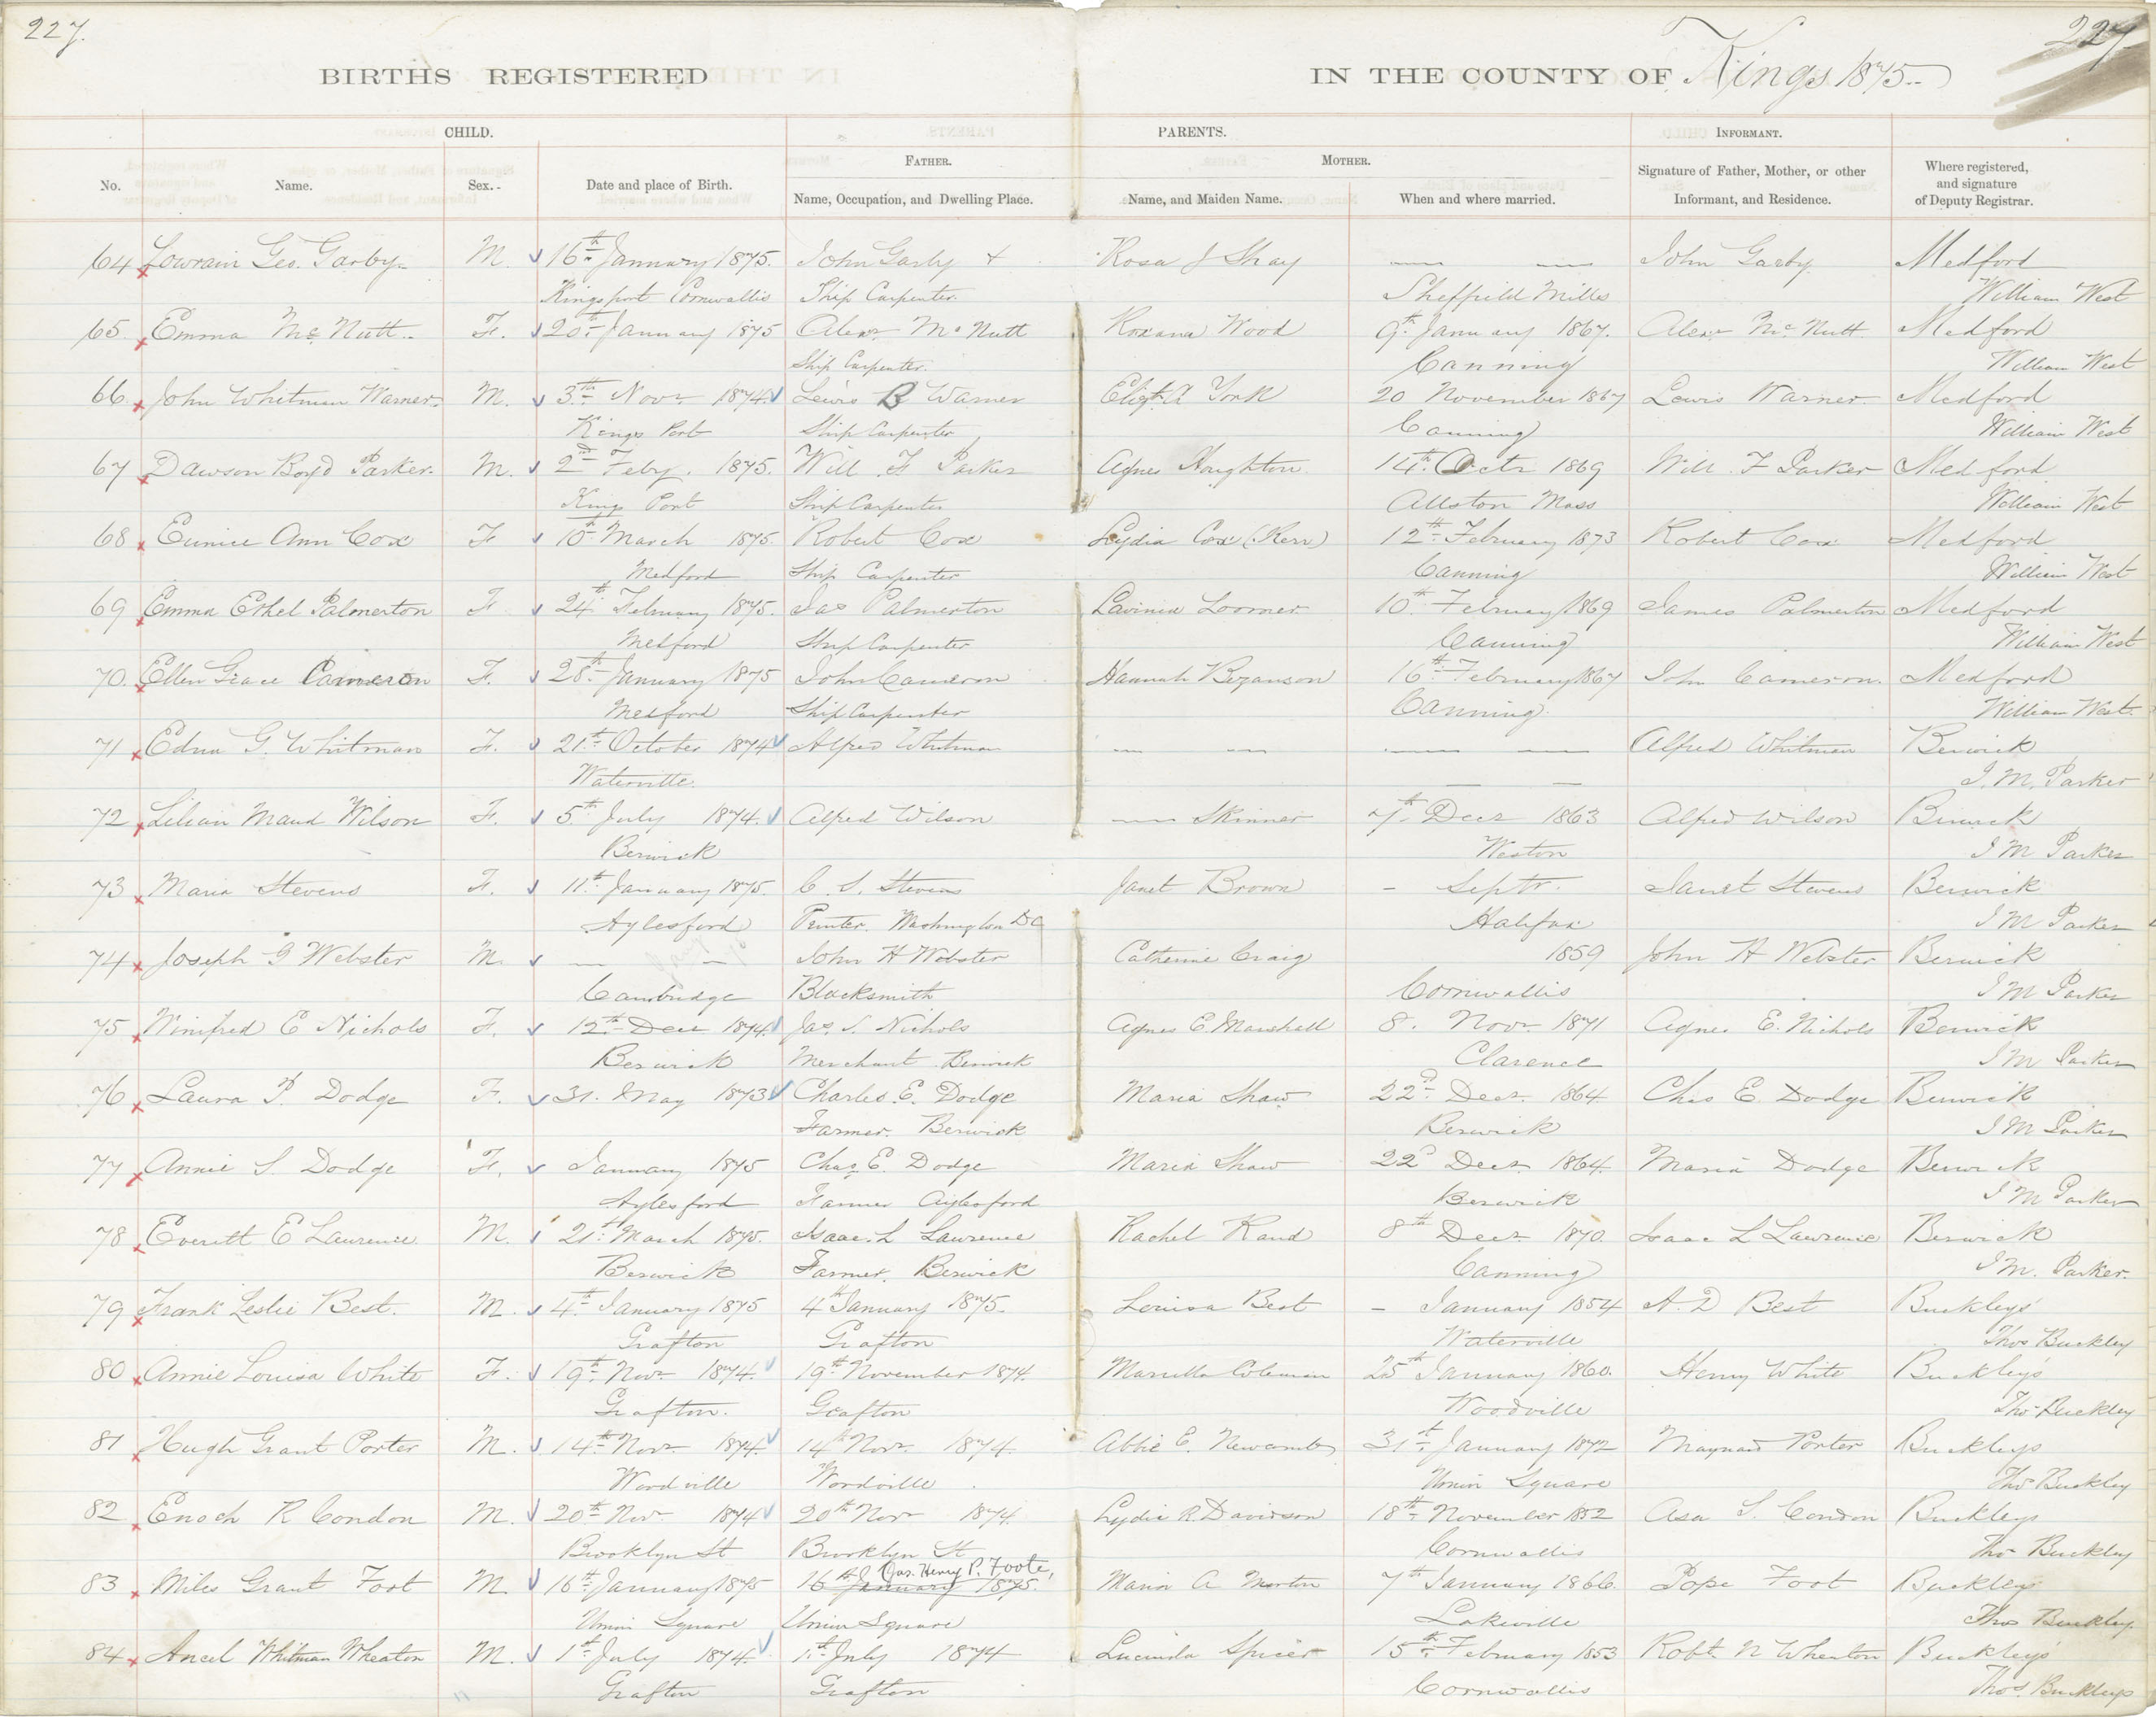 227.
227
BIRTHS REGISTERED IN THE COUNTY OF Kings 1875
CHILD. PARENTS. INFORMANT.
FATHER. MOTHER.
No. Name. Sex. Date and place of Birth. Name, Occupation, and Dwelling Place. Name, and Maiden Name. When and where married. Signature of Father, Mother, or other Informant, and Residence. Where registered, and signature of Deputy Registrar.
64 Lowrain Geo. Garby M. 16th January 1875. John Garby + Rosa J Shay — — John Garby Medford
Kingsport Cornwallis Ship Carpenter. Sheffield Mills William West
65 Emma McNutt F. 20th January 1875 Alexr McNutt Roxana Wood 9th January 1867. Alexr McNutt Medford
Ship Carpenter. Canning William West
66 John Whitman Warner M. 3th Novr 1874 Lewis B Warner Elizt A York 20 November 1867 Lewis Warner Medford
Kings Port Ship Carpenter Canning William West
67 Dawson Boyd Parker M. 2nd Feby. 1875. Will F Parker Agnes Houghton 14th Octr 1869 Will F Parker Medford
Kings Port Ship Carpenter Allston Mass William West
68 Eunice Ann Cox F 10th March 1875. Robert Cox Lydia Cox (Kerr) 12th February 1873 Robert Cox Medford
Medford Ship Carpenter Canning William West
69 Emma Ethel Palmerton F 24th February 1875. Jas Palmerton Lavinia Loomer 10th February 1869 James Palmerton Medford
Medford Ship Carpenter Canning William West
70. Ellen Grace Cameron F. 28th January 1875 John Cameron Hannah Bezanson 16th February 1867 John Cameron. Medford
Medford Ship Carpenter Canning. William West.
71 Edna G. Whitman F. 21th October 1874 Alfred Whitman — — — — Alfred Whitman Berwick
Waterville. — — I. M. Parker
72 Lilian Maud Wilson F. 5th July 1874. Alfred Wilson — Skinner 7th Decr 1863 Alfred Wilson Berwick
Berwick Weston I M Parker
73 Maria Stevens F. 11th January 1875. C. S. Stevens Janet Brown - Septr. Janet Stevens Berwick
Aylesford Printer. Washington DC Halifax I M Parker
74 Joseph G Webster M. — — John H Webster Catherine Craig 1859 John H Webster Berwick
Cambridge Blacksmith Cornwallis I M Parker
75 Winifred E Nichols F. 12th Decr 1874. Jas. S. Nichols Agnes E. Marshall 8. Novr 1871 Agnes E. Nichols Berwick
Berwick Merchant Berwick Clarence I M Parker
76 Laura P. Dodge F. 31. May 1873 Charles. E. Dodge Maria Shaw 22d Decr 1864. Chas E. Dodge Berwick
Farmer. Berwick Berwick I M Parker
77 Annie S. Dodge F. January 1875 Chas E. Dodge Maria Shaw 22d Decr 1864. Maria Dodge Berwick
Aylesford Farmer Aylesford Berwick I M Parker
78 Everett E Lawrence M. 21st March 1875. Isaac. L Lawrence Rachel Rand 8th Decr 1870. Isaac L Lawrence Berwick
Berwick Farmer. Berwick Canning I M. Parker.
79 Frank Leslie Best. M. 4th January 1875 4th January 1875. Louisa Best - January 1854 A. D Best Buckleys
Grafton Grafton Waterville Thos Buckley
80 Annie Louisa White F. 19th Novr 1874. 19th November 1874. Marcella Coleman 25th January 1860. Henry White Buckleys
Grafton. Grafton Woodville Thos Buckley
81 Hugh Grant Porter M. 14th Novr 1874 14th Novr. 1874. Abbie E. Newcomb 31st January 1872 Maynard Porter Buckleys
Woodville Woodville Union Square Thos Buckley
82 Enoch R Condon M. 20th Novr 1874 20th Novr 1874. Lydia R. Davidson 18th November 1852 Asa S. Condon Buckleys
Brooklyn St Brooklyn St Cornwallis Thos Buckley
Jas. Henry P. Foote,
83 Miles Grant Foot M. 16th January 1875 16th January 1875. Maria A Morton 7th January 1866. Pope Foot Buckleys
Union Square Union Square Lakeville Thos Buckley.
84 Ancel Whitman Wheaton M. 1st July 1874. 1st July 1874 Lucinda Spicer 15th February 1853 Robt. N Wheaton Buckleys
Grafton Grafton Cornwallis Thos. Buckleys